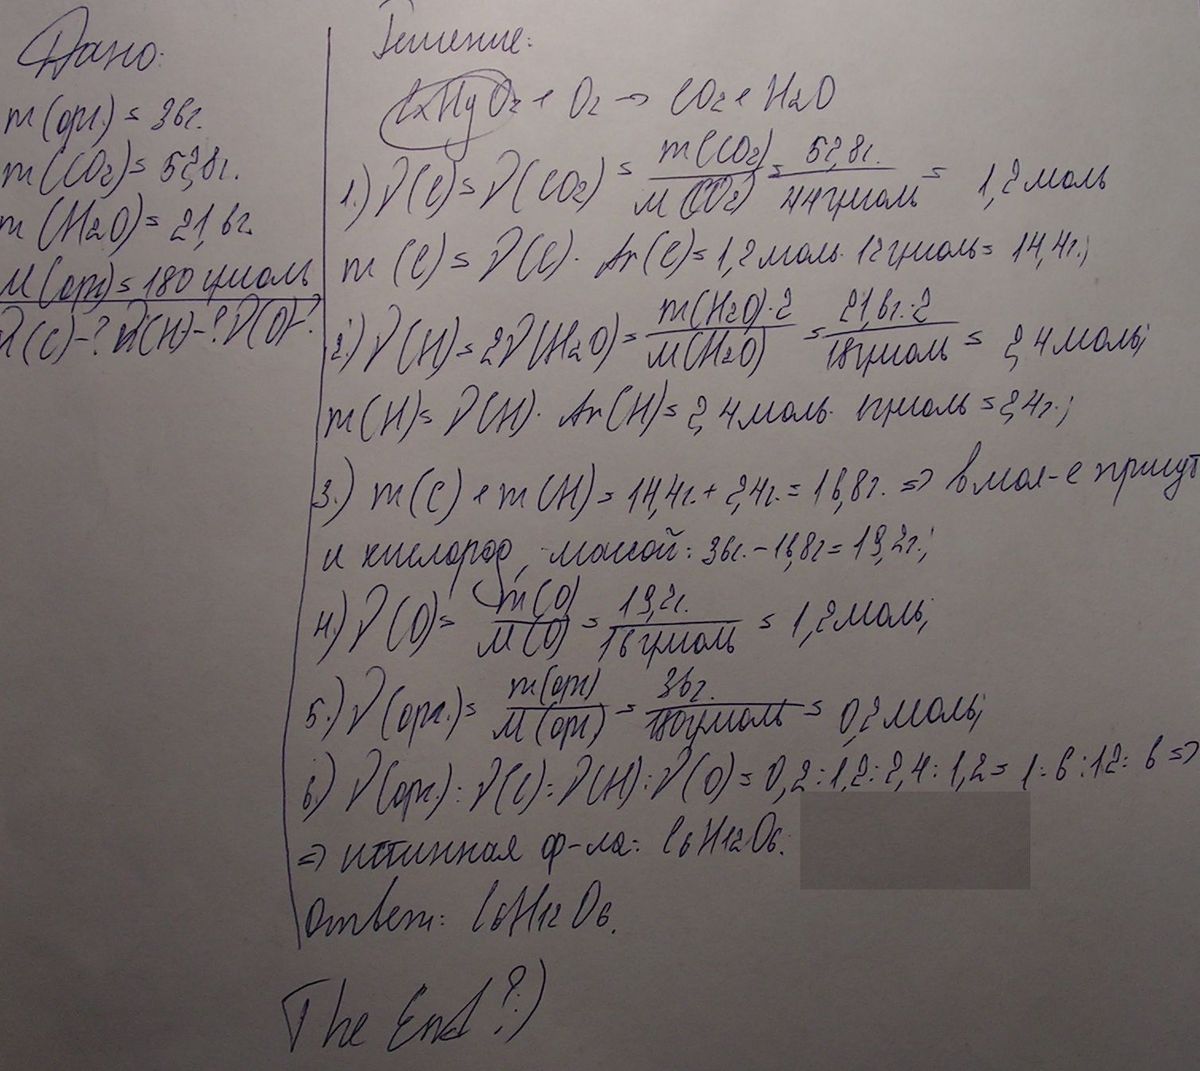 Дано:
m(орг.) = 36г.
m(CO2) = 52,8г.
m(H2O) = 21,6г.
M(орг) = 180 г/моль
ν(C)-? ν(H)-? ν(O)-?
Решение:
CxHyOz + O2 → CO2 + H2O
1.) ν(C) = ν(CO2) = m(CO2)/M(CO2) = 52,8г./44г/моль = 1,2 моль
m(C) = ν(C) · Ar(C) = 1,2 моль · 12 г/моль = 14,4г.;
2.) ν(H) = 2ν(H2O) = m(H2O)·2/M(H2O) = 21,6г·2/18г/моль = 2,4 моль;
m(H) = ν(H) · Ar(H) = 2,4 моль · 1г/моль = 2,4г.;
3.) m(C) + m(H) = 14,4г. + 2,4г. = 16,8г. => в мол-е присут
и кислород, массой: 36г. - 16,8г = 19,2г.;
4.) ν(O) = m(O)/M(O) = 19,2г./16г/моль = 1,2 моль;
5.) ν(орг.) = m(орг)/M(орг) = 36г./180г/моль = 0,2 моль;
6.) ν(орг.) : ν(C) : ν(H) : ν(O) = 0,2 : 1,2 : 2,4 : 1,2 = 1 : 6 : 12 : 6 =>
=> истинная ф-ла: C6H12O6.
Ответ: C6H12O6.
The End?:)